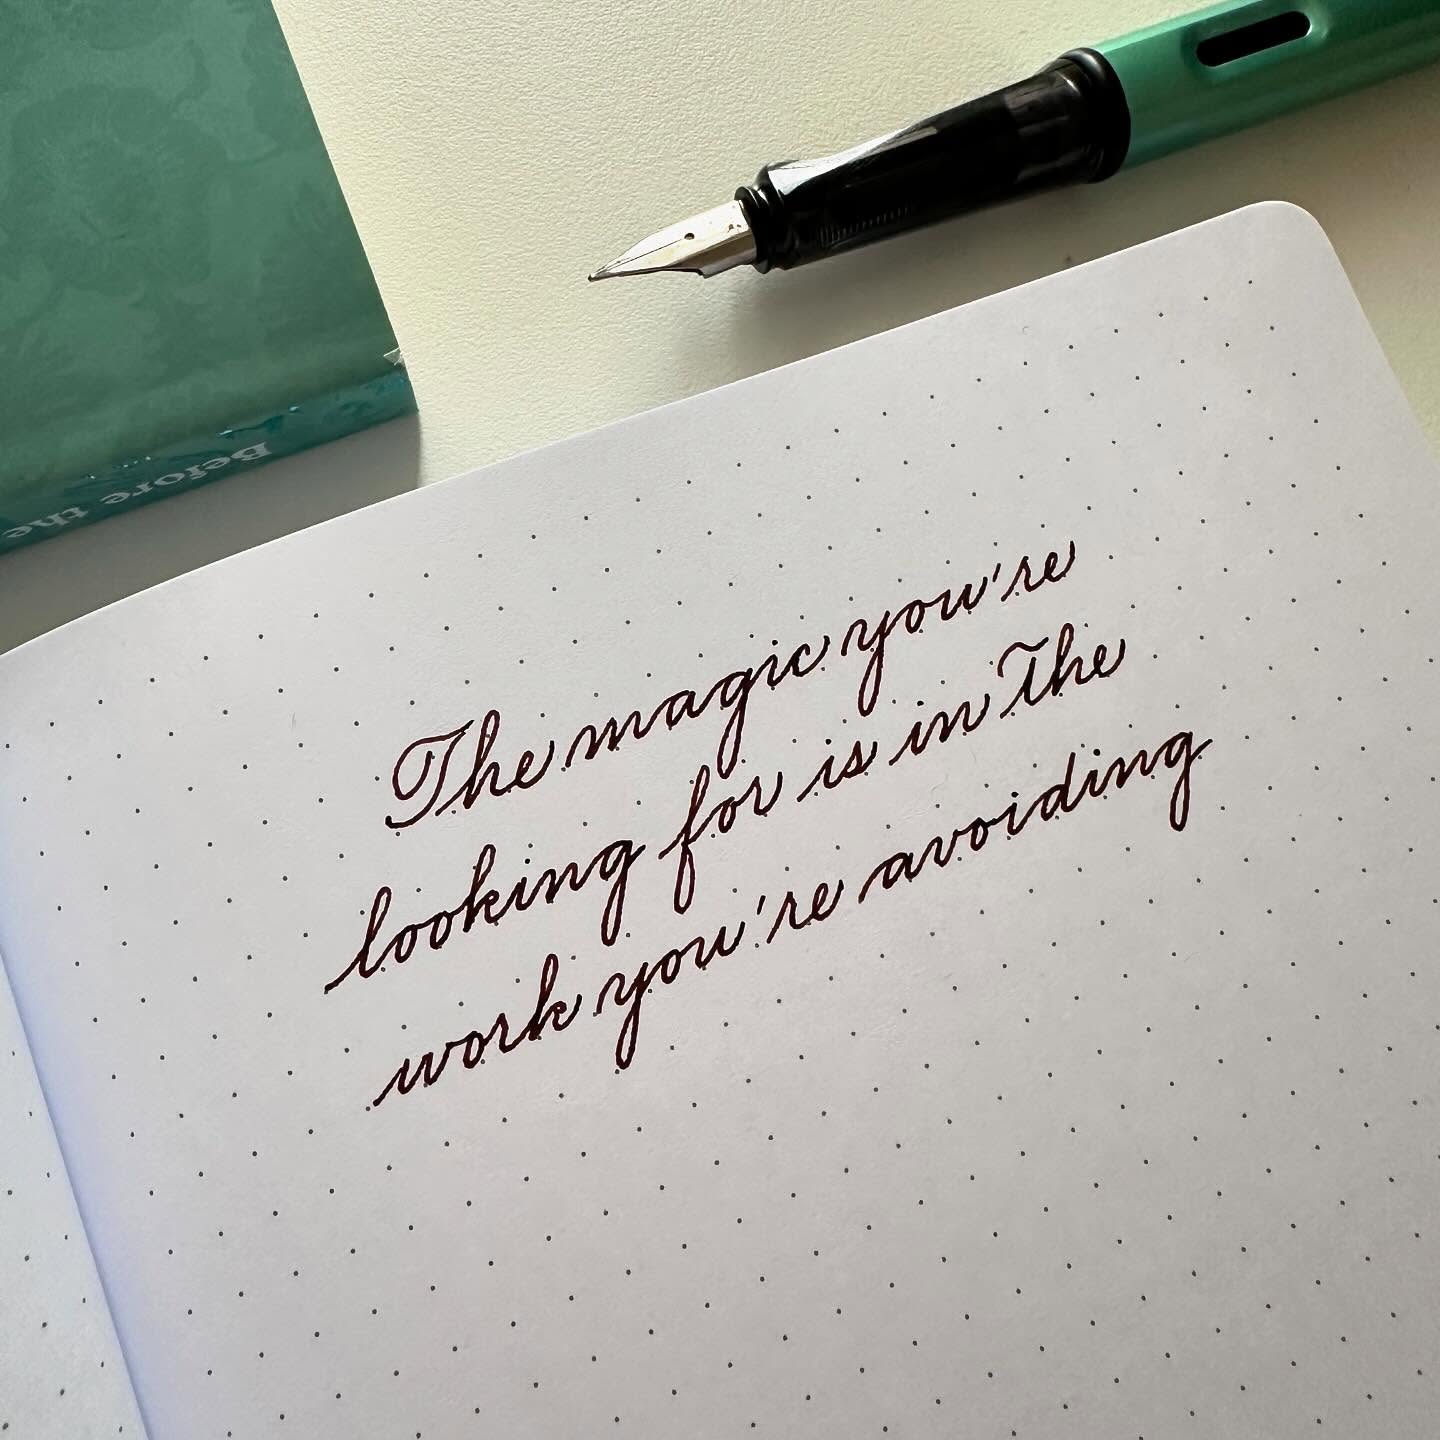 Before the
The magic you're
looking for is in The
work you're avoiding